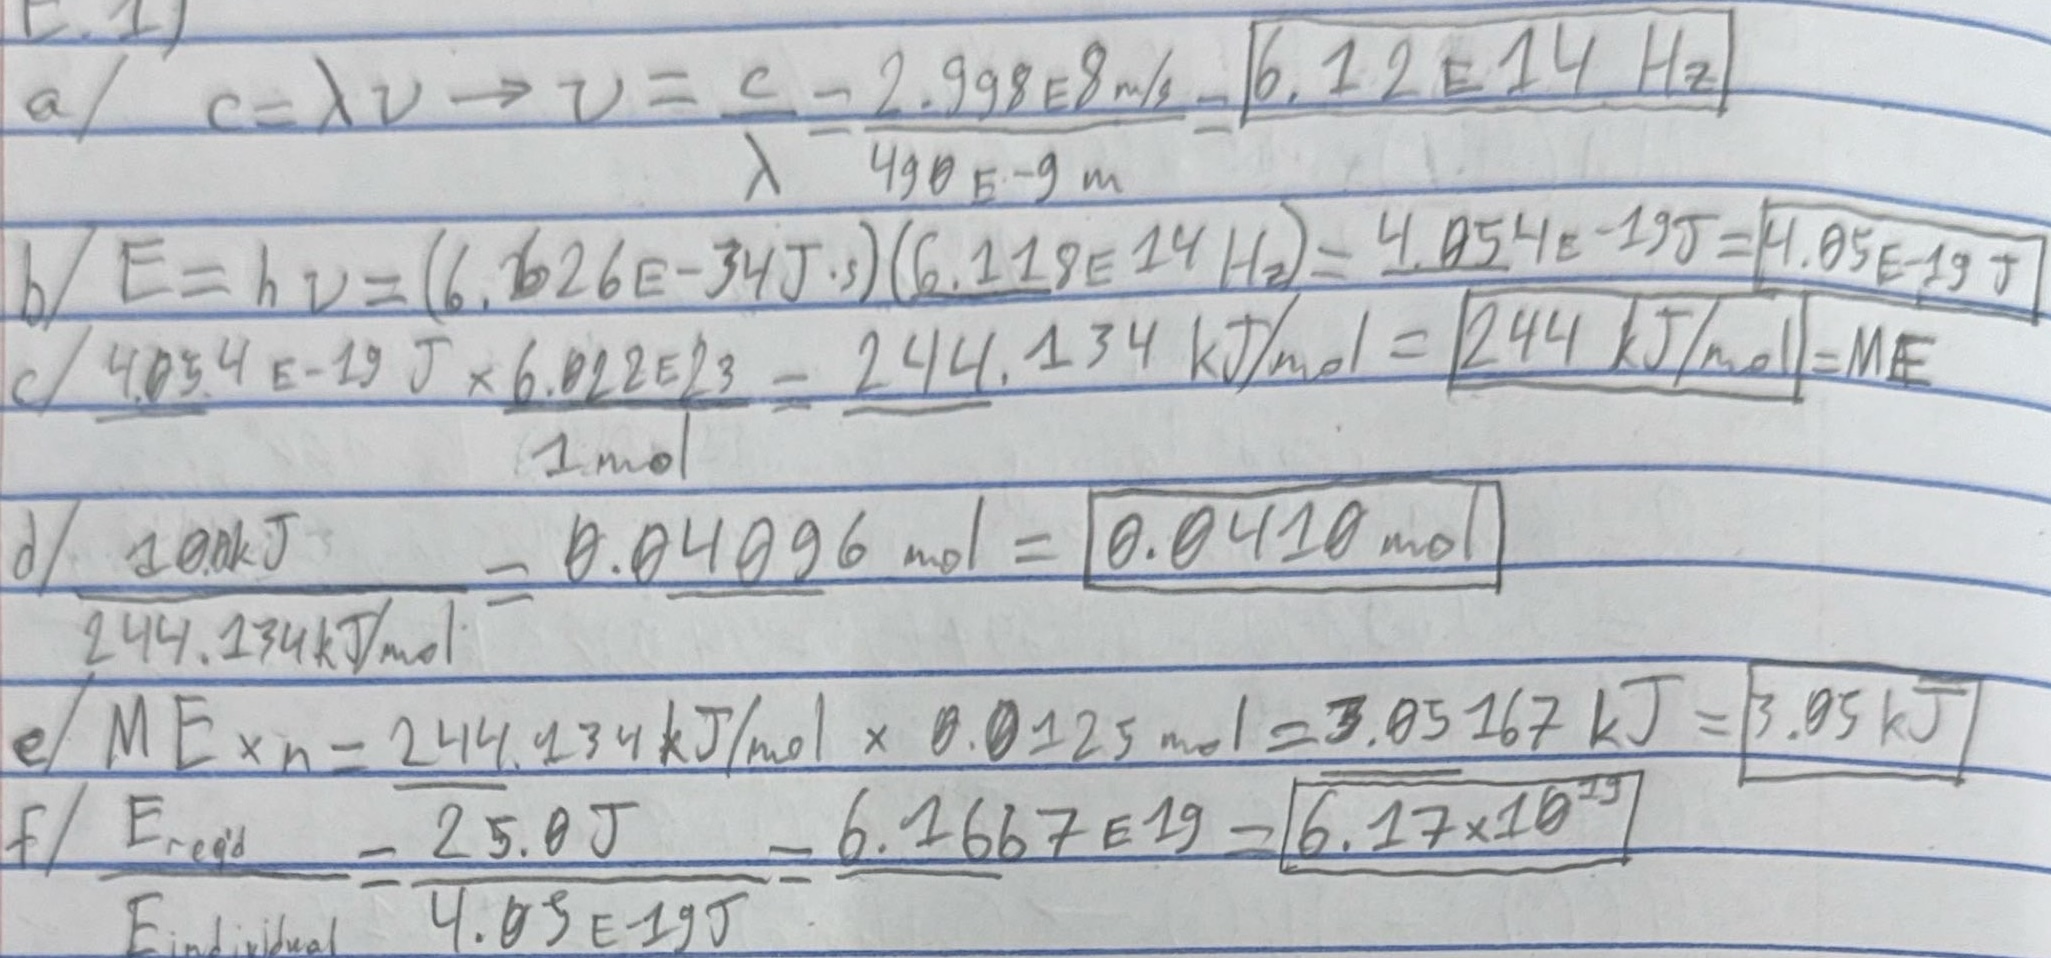 E.1)
a/ c = λν → ν = c/λ = 2.998E8 m/s / 490E-9 m = 6.12E14 Hz
b/ E = hν = (6.626E-34J·s)(6.118E14 Hz) = 4.054E-19J = 4.05E-19J
c/ 4.054E-19 J × 6.022E23 / 1 mol = 244.134 kJ/mol = 244 kJ/mol = ME
d/ 10.0kJ / 244.134kJ/mol = 0.04096 mol = 0.0410 mol
e/ ME × n = 244.134kJ/mol × 0.0125 mol = 3.05167 kJ = 3.05 kJ
f/ E req'd / E individual = 25.0J / 4.05E-19J = 6.1667E19 = 6.17×10^19